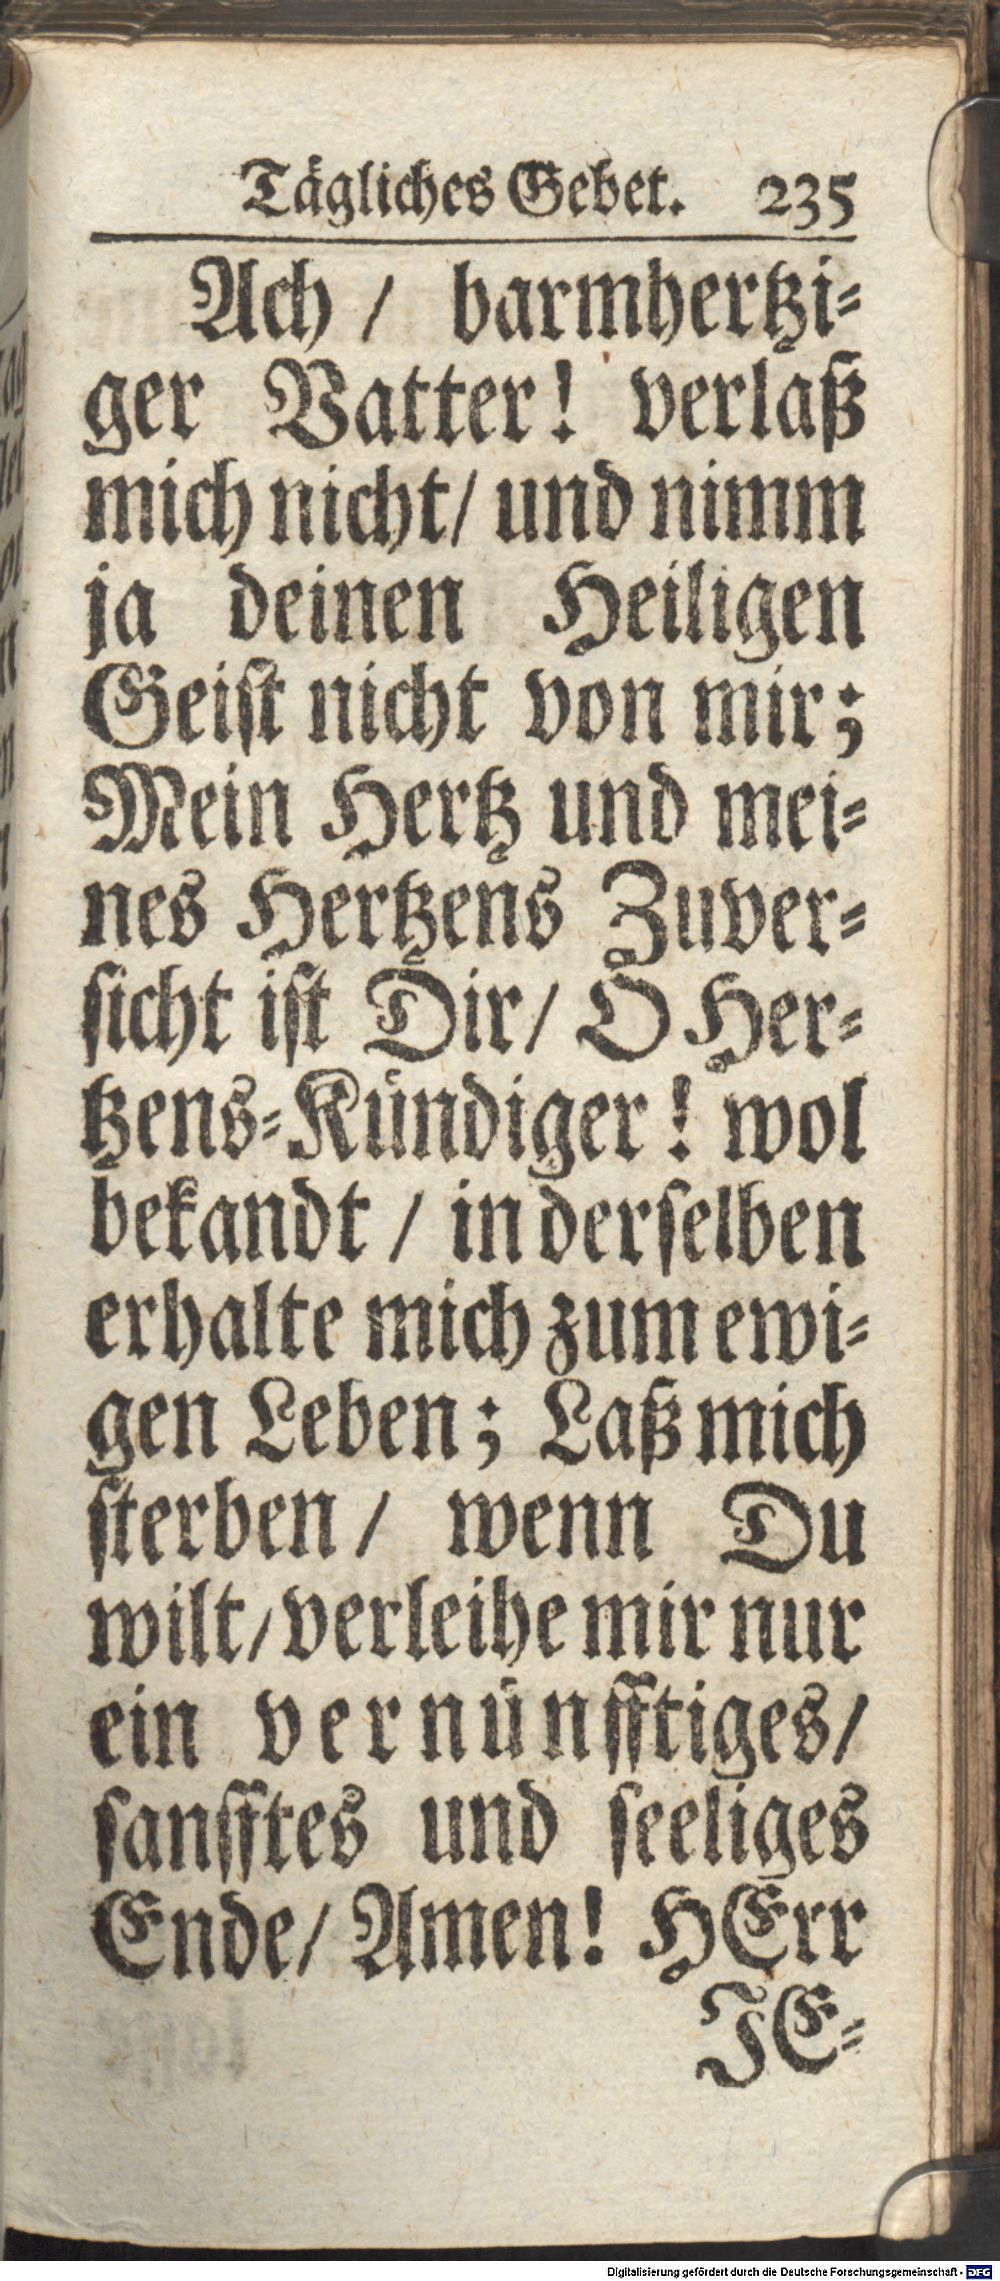 Tägliches Gebet. 235
Ach / barmhertzi-
ger Vatter! verlaß
mich nicht/ und nimm
ja deinen Heiligen
Geist nicht von mir;
Mein Hertz und mei-
nes Hertzens Zuver-
sicht ist Dir/ O Her-
tzens-Kündiger! wol
bekandt / in derselben
erhalte mich zum ewi-
gen Leben; Laß mich
sterben/ wenn Du
wilt/ verleihe mir nur
ein vernünfftiges/
sanfftes und seeliges
Ende/ Amen! HErr
JE-
Digitalisierung gefördert durch die Deutsche Forschungsgemeinschaft - DFG